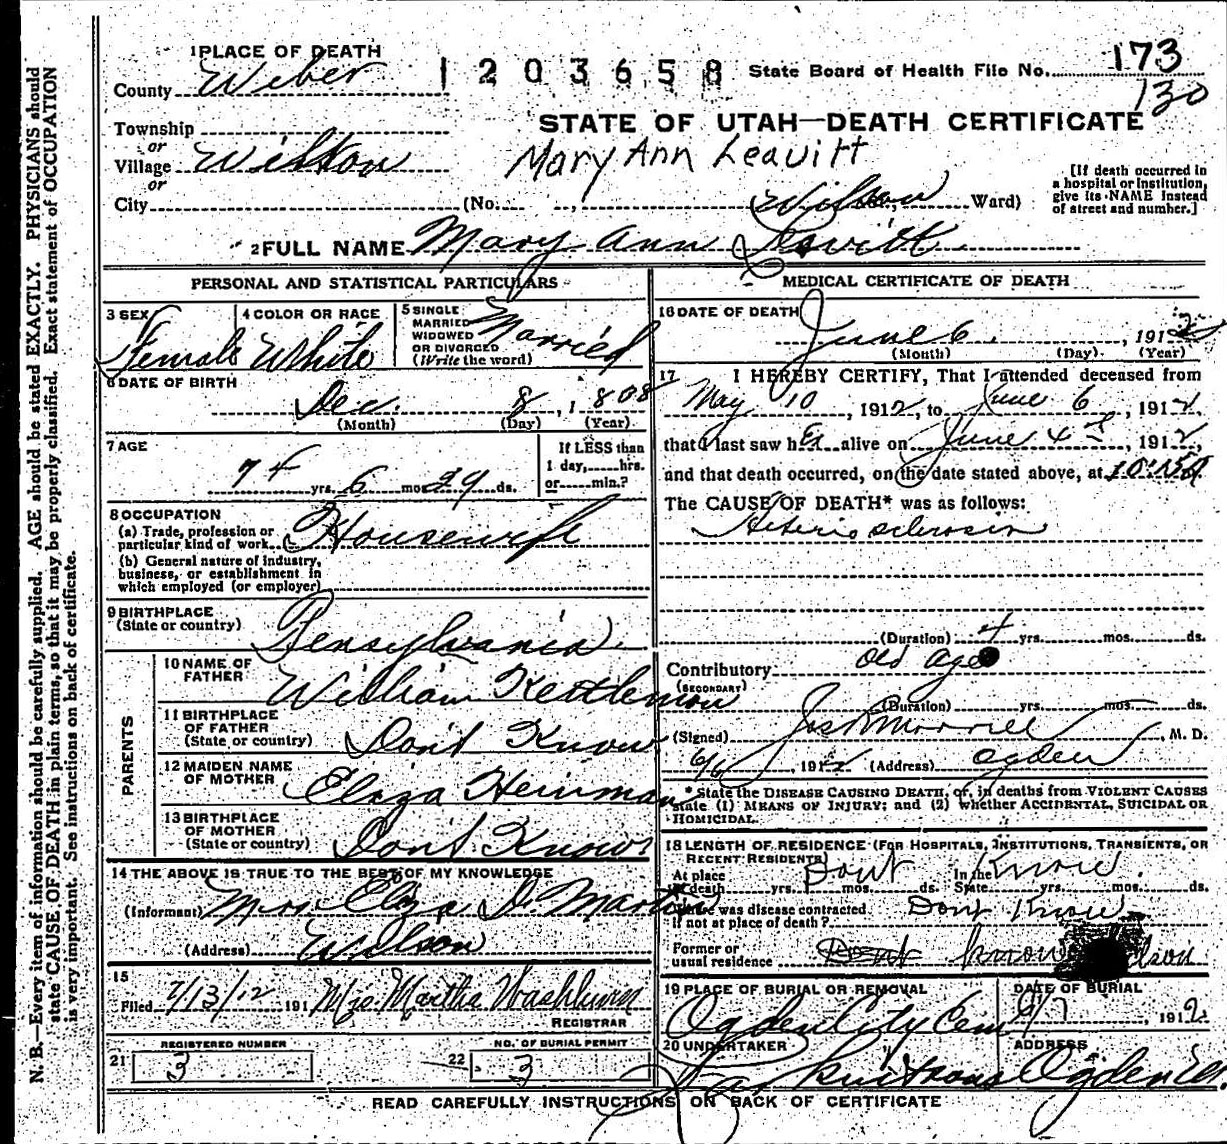 1 PLACE OF DEATH
County Weber
1203658
State Board of Health File No. 173
130
STATE OF UTAH—DEATH CERTIFICATE
Mary Ann Leavitt
Township
or
Village Wilson
or
City (No. , Wilson Ward)
[If death occurred in
a hospital or institution,
give its NAME instead
of street and number.]
2 FULL NAME Mary Ann Leavitt
PERSONAL AND STATISTICAL PARTICULARS
3 SEX
Female
4 COLOR OR RACE
White
5 SINGLE
MARRIED
WIDOWED
OR DIVORCED
(Write the word)
Married
6 DATE OF BIRTH
Dec. 8, 1808
(Month) (Day) (Year)
7 AGE
74 yrs. 6 mos. 29 ds.
If LESS than
1 day, hrs.
or min.?
8 OCCUPATION
(a) Trade, profession or
particular kind of work Housewife
(b) General nature of industry,
business, or establishment in
which employed (or employer)
9 BIRTHPLACE
(State or country) Pensylvania
PARENTS
10 NAME OF
FATHER William Kettleman
11 BIRTHPLACE
OF FATHER
(State or country) Don't Know
12 MAIDEN NAME
OF MOTHER Eliza Heinman
13 BIRTHPLACE
OF MOTHER
(State or country) Don't Know
14 THE ABOVE IS TRUE TO THE BEST OF MY KNOWLEDGE
(Informant) Mrs. Eliza D. Martin
(Address) Wilson
15
Filed 7/13/12 191 Mrs. Martha Washburn
REGISTRAR
REGISTERED NUMBER
21 3
NO. OF BURIAL PERMIT
22 3
MEDICAL CERTIFICATE OF DEATH
16 DATE OF DEATH
June 6, 1912
(Month) (Day) (Year)
17 I HEREBY CERTIFY, That I attended deceased from
May 10, 1912, to June 6, 1912,
that I last saw her alive on June 4, 1912,
and that death occurred, on the date stated above, at
The CAUSE OF DEATH* was as follows:
(Duration) 4 yrs. mos. ds.
Contributory old age
(SECONDARY)
(Duration) yrs. mos. ds.
(Signed) Jos R Morrell, M. D.
6/6, 1912 (Address) Ogden
*State the DISEASE CAUSING DEATH, or, in deaths from VIOLENT CAUSES
state (1) MEANS OF INJURY; and (2) whether ACCIDENTAL, SUICIDAL OR
HOMICIDAL.
18 LENGTH OF RESIDENCE (FOR HOSPITALS, INSTITUTIONS, TRANSIENTS, OR
RECENT RESIDENTS)
At place In the
of death yrs. Dont mos. ds. State Know. yrs. mos. ds.
Where was disease contracted
if not at place of death? Dont Know
Former or
usual residence Dont know
19 PLACE OF BURIAL OR REMOVAL
Ogden City Cem
DATE OF BURIAL
6/7, 1912
20 UNDERTAKER
ADDRESS
Ogden
READ CAREFULLY INSTRUCTIONS ON BACK OF CERTIFICATE
N. B.—Every item of information should be carefully supplied. AGE should be stated EXACTLY. PHYSICIANS should
state CAUSE OF DEATH in plain terms, so that it may be properly classified. Exact statement of OCCUPATION
is very important. See instructions on back of certificate.